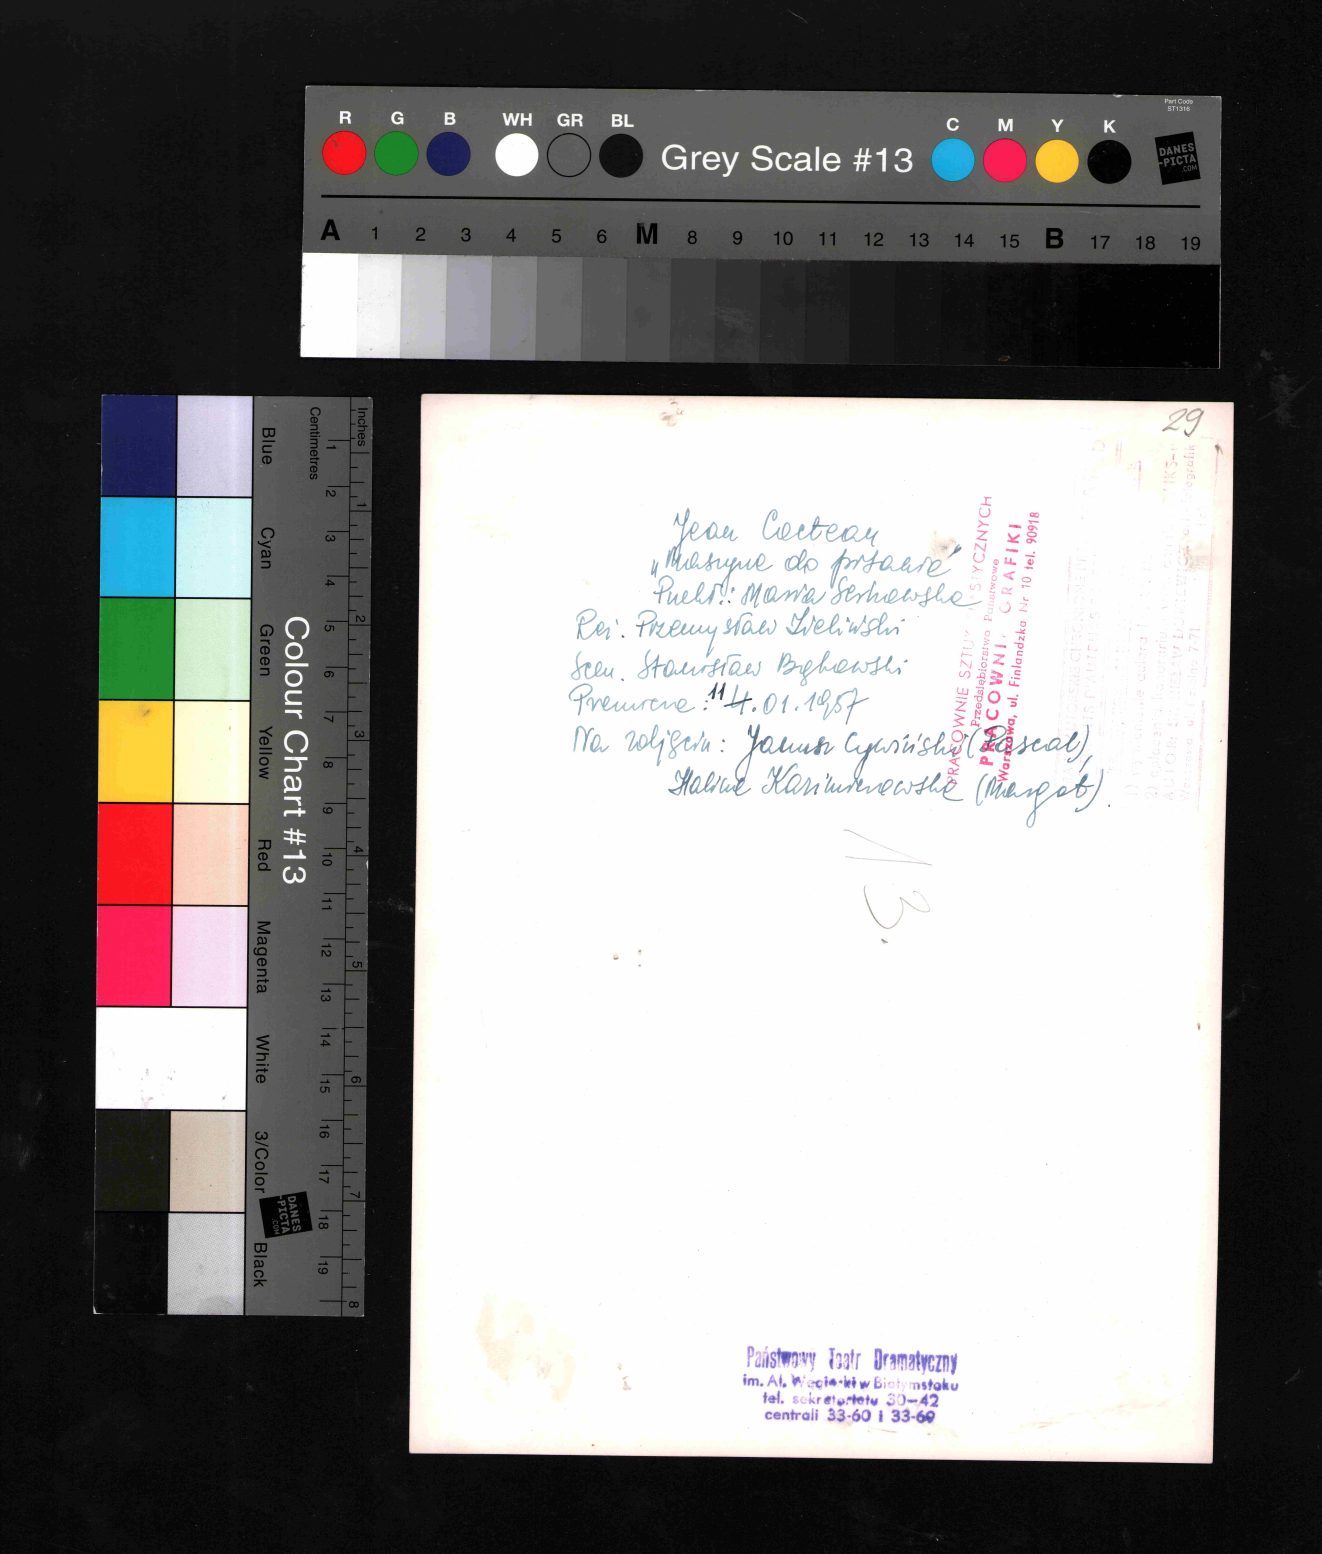 Part Code
ST1316
R G B WH GR BL
Grey Scale #13
C M Y K
DANES
-PICTA
.COM
A 1 2 3 4 5 6 M 8 9 10 11 12 13 14 15 B 17 18 19
Blue
Cyan
Green
Yellow
Red
Magenta
White
3/Color
Black
Colour Chart #13
DANES
-PICTA
.COM
Centimetres
1 2 3 4 5 6 7 8 9 10 11 12 13 14 15 16 17 18 19
Inches
1 2 3 4 5 6 7 8
29
Jean Cocteau
„Maszyna do pisania"
Przekł.: Maria Serkowska
Reż. Przemysław Zieliński
Scen. Stanisław Bąkowski
Premiera: 11 4.01.1957
Na zdjęciu: Janusz Cywiński (Pascal),
Halina Kazimierowska (Margot).
PRACOWNIE SZTUK STYCZNYCH
Przedsiębiorstwo Państwowe
PRACOWNI GRAFIKI
Warszawa, ul. Finlandzka Nr 10 tel. 90918
13
Państwowy Teatr Dramatyczny
im. Al. Węgierki w Białymstoku
tel. sekretariatu 30-42
centrali 33-60 i 33-69